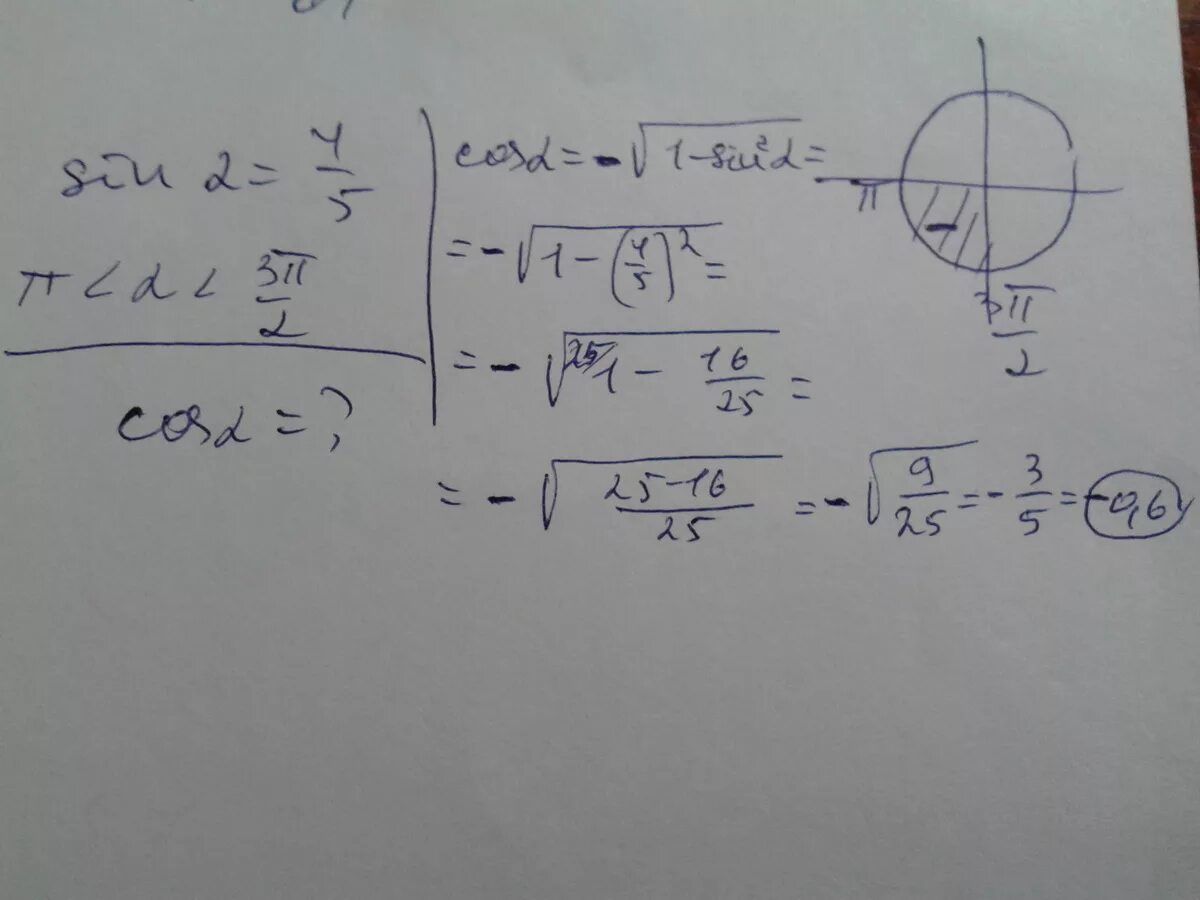 sin α = 4/5
π < α < 3π/2
cosα = ?
cosα = -√(1-sin²α) =
= -√(1-(4/5)²) =
= -√(²⁵⁄1 - 16/25) =
= -√((25-16)/25) = -√(9/25) = -3/5 = -0,6
π
-
3π/2